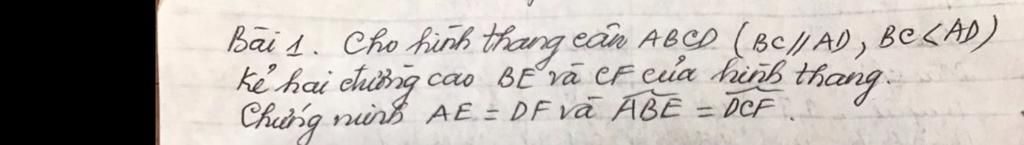 Bài 1. Cho hình thang cân ABCD (BC // AD, BC < AD)
Kẻ hai đường cao BE và CF của hình thang.
Chứng minh AE = DF và \widehat{ABE} = \widehat{DCF}.